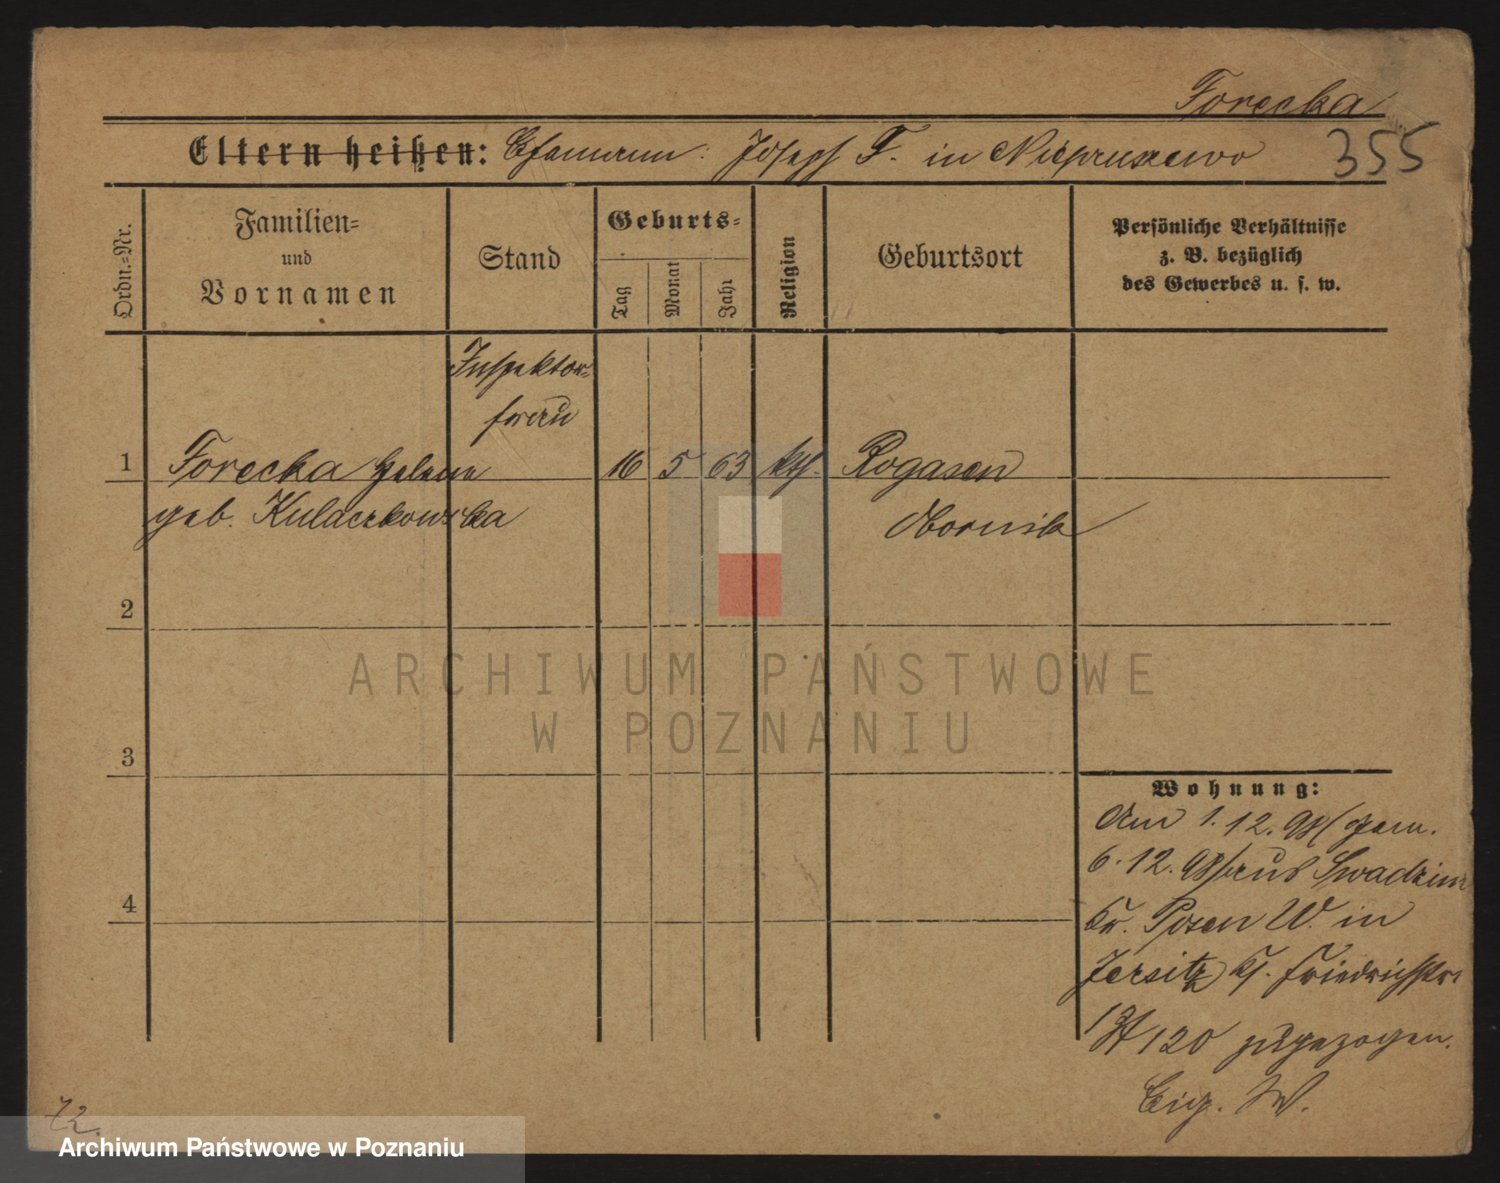 Forecka
Eltern heißen: Ehemann: Josef F. in Niepruszewo 355
Ordn.-Nr.
Familien-
und
Vornamen
Stand
Geburts-
Tag
Monat
Jahr
Religion
Geburtsort
Persönliche Verhältnisse
z. B. bezüglich
des Gewerbes u. s. w.
Inspektor-
frau
1 Forecka Helene 16 5 63 kth. Rogasen
geb. Kulaczkowska Obornik
2
ARCHIWUM PAŃSTWOWE
W POZNANIU
3
Wohnung:
Am 1.12.98/gem.
6.12.98/aus Swadzim
Kr. Posen W. in
Jersitz Kf. Friedrichstr.
120 zugezogen.
Eig. W.
4
72.
Archiwum Państwowe w Poznaniu